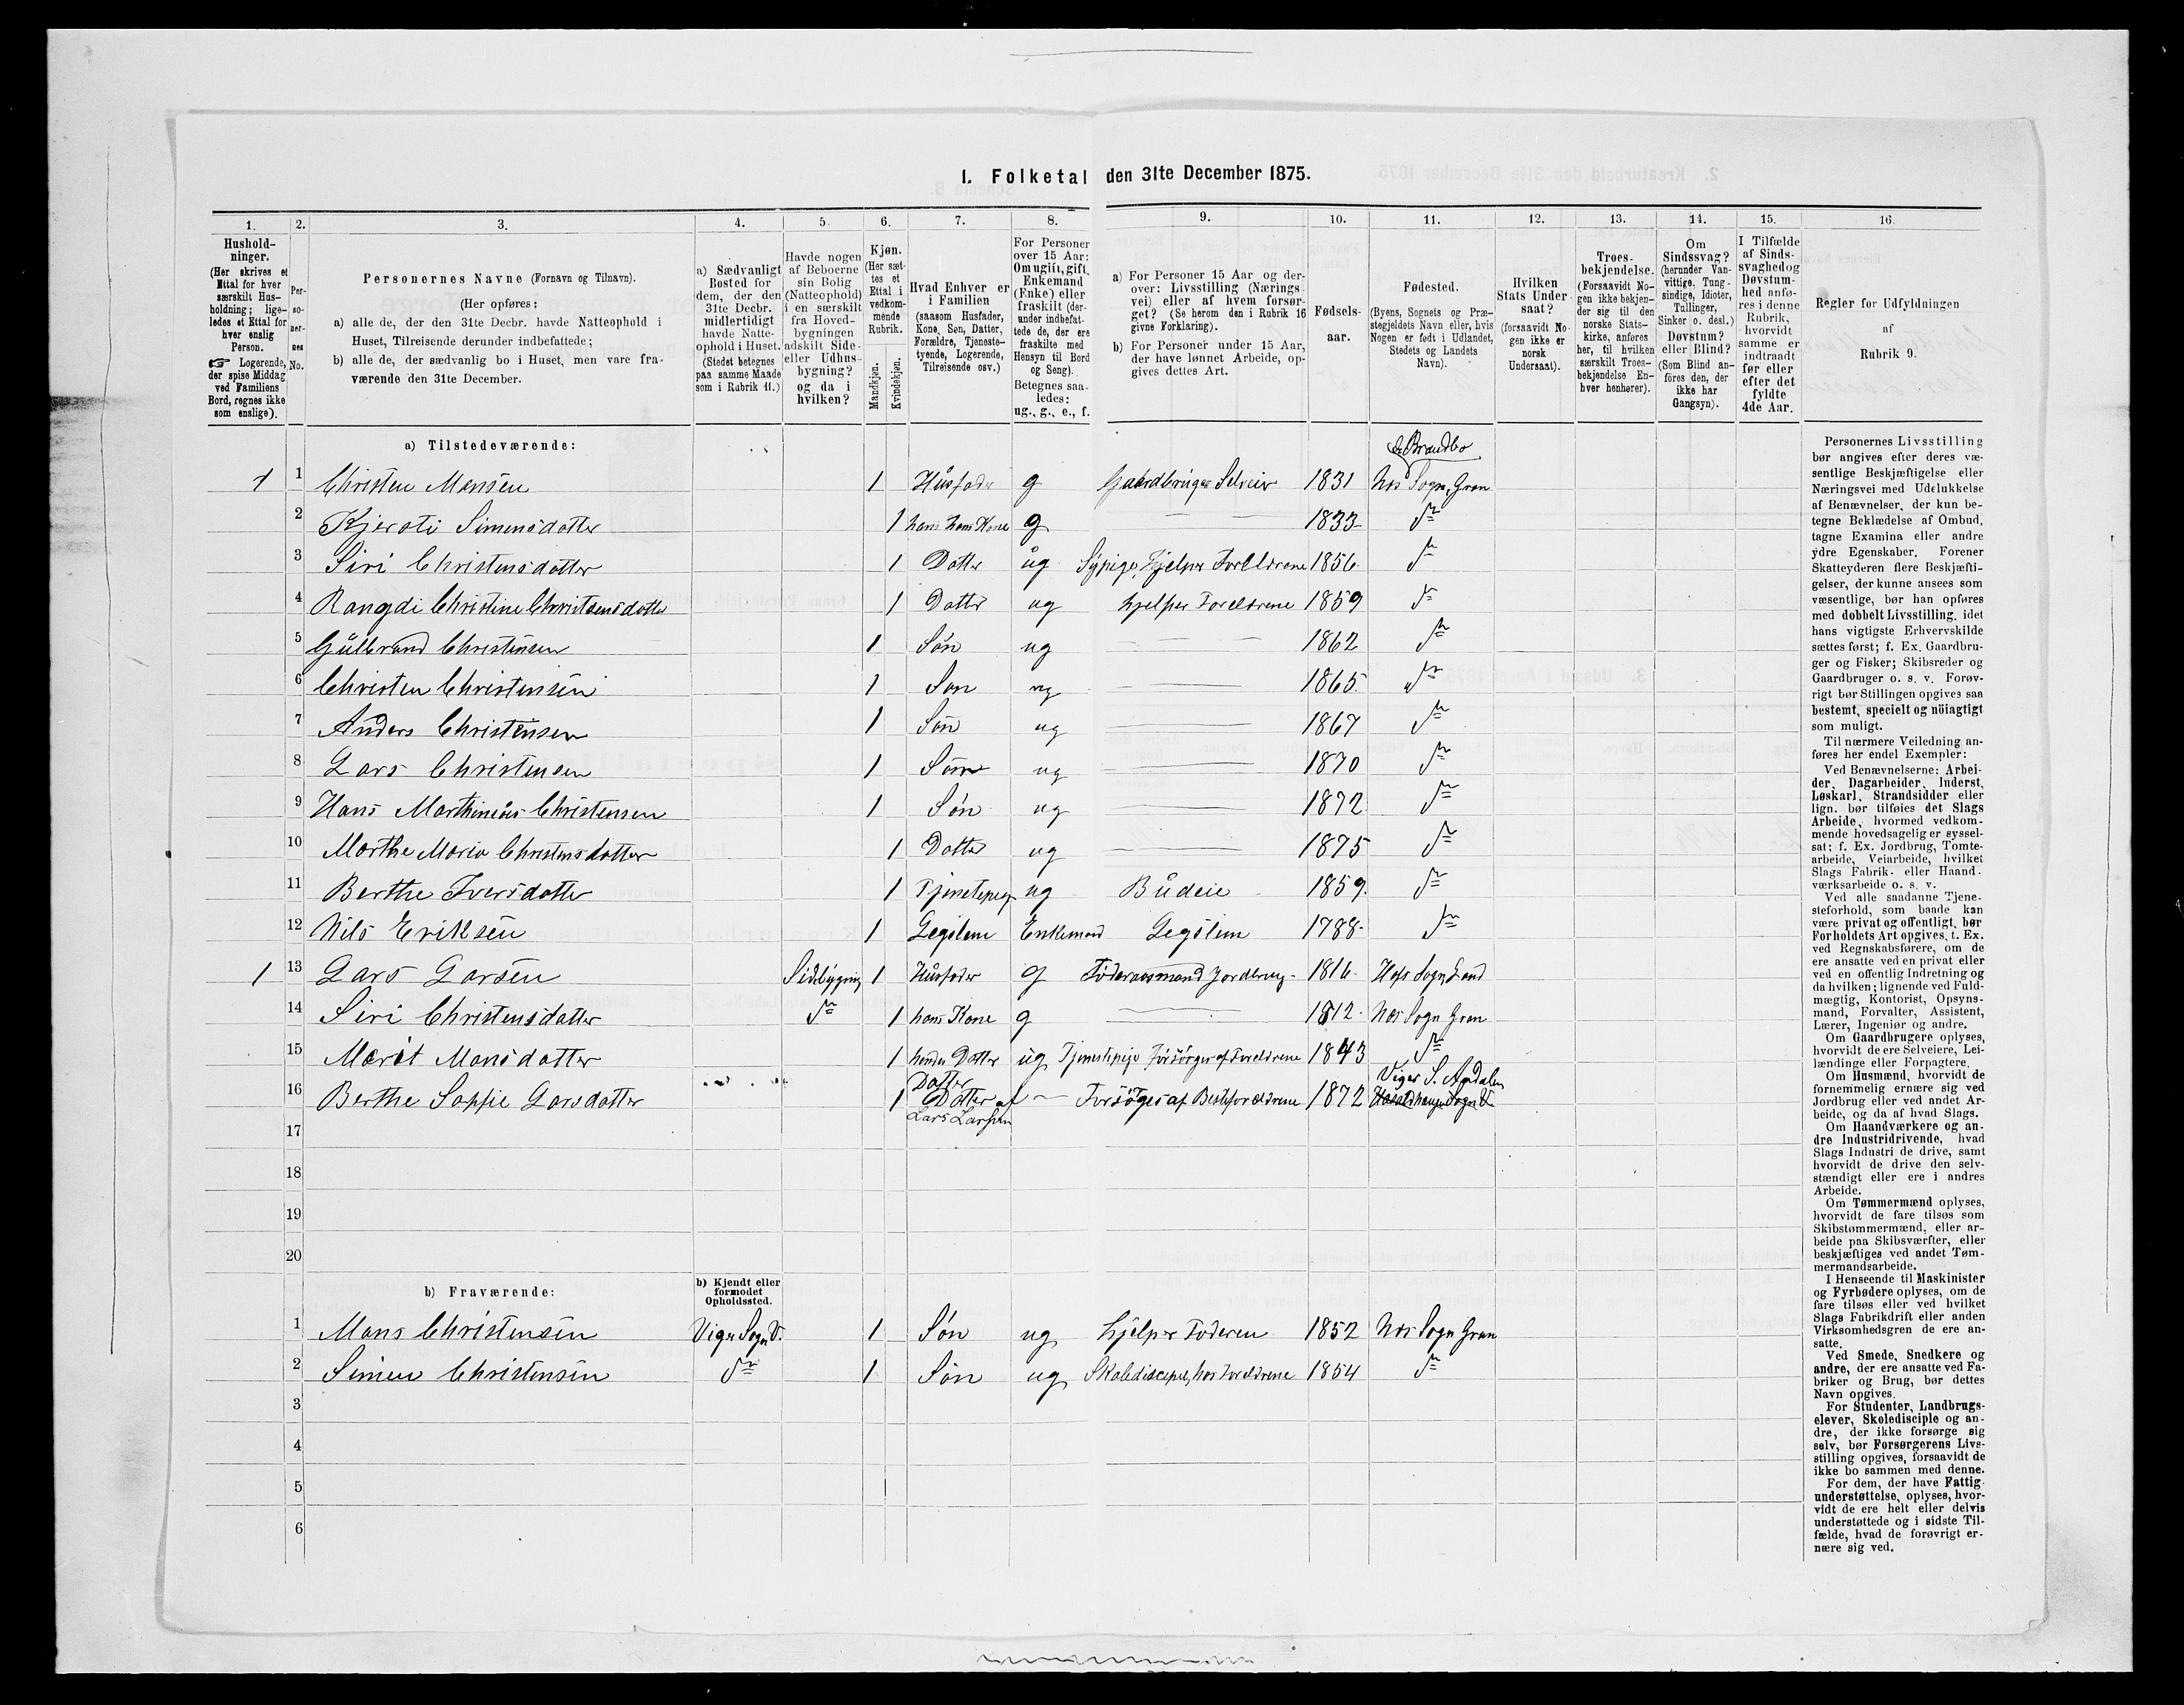 1. Folketal den 31te December 1875.
1. 2. 3. 4. 5. 6. 7. 8. 9. 10. 11. 12. 13. 14. 15. 16.
Hushold-
ninger.
(Her skrives et
Ettal for hver
særskilt Hus-
holdning; lige-
ledes et Ettal for
hver enslig
Person.
☞ Logerende,
der spise Middag
ved Familiens
Bord, regnes ikke
som enslige).
Per-
so-
ner-
nes
No.
Personernes Navne (Fornavn og Tilnavn).
(Her opføres:
a) alle de, der den 31te Decbr. havde Natteophold i
Huset, Tilreisende derunder indbefattede;
b) alle de, der sædvanlig bo i Huset, men vare fra-
værende den 31te December.
a) Sædvanligt
Bosted for
dem, der den
31te Decbr.
midlertidigt
havde Natte-
ophold i Huset.
(Stedet betegnes
paa samme Maade
som i Rubrik 11.)
Havde nogen
af Beboerne
sin Bolig
(Natteophold)
i en særskilt
fra Hoved-
bygningen
adskilt Side-
eller Udhus-
bygning?
og da i
hvilken?
Kjøn.
(Her sæt-
tes et
Ettal i
vedkom-
mende
Rubrik.
Mandkjøn.
Kvindekjøn.
Hvad Enhver er
i Familien
(saasom Husfader,
Kone, Søn, Datter,
Forældre, Tjeneste-
tyende, Logerende,
Tilreisende osv.)
For Personer
over 15 Aar:
Om ugift, gift,
Enkemand
(Enke) eller
fraskilt (der-
under indbefat-
tede de, der ere
fraskilte med
Hensyn til Bord
og Seng).
Betegnes saa-
ledes:
ug., g., e., f.
a) For Personer 15 Aar og der-
over: Livsstilling (Nærings-
vei) eller af hvem forsør-
get? (Se herom den i Rubrik 16
givne Forklaring).
b) For Personer under 15 Aar,
der have lønnet Arbeide, op-
gives dettes Art.
Fødsels-
aar.
Fødested.
(Byens, Sognets og Præ-
stegjeldets Navn eller, hvis
Nogen er født i Udlandet,
Stedets og Landets
Navn).
Hvilken
Stats Under-
saat?
(forsaavidt No-
gen ikke er
norsk
Undersaat).
Troes-
bekjendelse.
(Forsaavidt No-
gen ikke bekjen-
der sig til den
norske Stats-
kirke, anføres
her, til hvilken
særskilt Troes-
bekjendelse En-
hver henhører).
Om
Sindssvag?
(herunder Van-
vittige, Tung-
sindige, Idioter,
Tullinger,
Sinker o. desl.)
Døvstum?
eller Blind?
(Som Blind an-
føres den, der
ikke har
Gangsyn).
I Tilfælde
af Sinds-
svaghed og
Døvstum-
hed anfø-
res i denne
Rubrik,
hvorvidt
samme er
indtraadt
før eller
efter det
fyldte
4de Aar.
Regler for Udfyldningen
af
Rubrik 9.
a) Tilstedeværende:
Brandbo
1 1 Christen Monsen 1 Husfader g Gaardbruger Selveier 1831 Nes Sogn, Gran
2 Kjersti Simensdatter 1 hans Kone g 1833 do
3 Siri Christensdatter 1 Datter ug Sypige, Hjelper Foreldrene 1856 do
4 Rangdi Christine Christensdatter 1 Datter ug hjelper Foreldrene 1859 do
5 Gulbrand Christensen 1 Søn ug 1862 do
6 Christen Christensen 1 Søn ug 1865 do
7 Anders Christensen 1 Søn ug 1867 do
8 Lars Christensen 1 Søn ug 1870 do
9 Hans Marthineus Christensen 1 Søn ug 1872 do
10 Marthe Maria Christensdatter 1 Datter ug 1875 do
11 Berthe Iversdatter 1 Tjenestepige ug Budeie 1859 do
12 Nils Eriksen 1 Legslem Enkemand Legslem 1788 do
1 13 Lars Larsen Sidebygning 1 Husfader g Føderaadsmand Jordbrug 1816 Hofs Sogn Land
14 Siri Christensdatter do 1 hans Kone g 1812 Nes Sogn Gran
15 Marit Monsdatter 1 hendes Datter ug Tjenestepige Forsørges af Foreldrene 1843 do
16 Berthe Sophie Larsdatter 1 Datter Datter af Lars Larsen Forsørges af Besteforeldrene 1872 Viger S. Aadalen
17
18
19
20
b) Fraværende:
b) Kjendt eller
formodet
Opholdssted.
1 Mons Christensen Viger Sogn 1 Søn ug hjelper Faderen 1852 Nes Sogn Gran
2 Simen Christensen do 1 Søn ug Skolediscipel, hos Foreldrene 1854 do
3
4
5
6
Personernes Livsstilling
bør angives efter deres væ-
sentlige Beskjæftigelse eller
Næringsvei med Udelukkelse
af Benævnelser, der kun be-
tegne Beklædelse af Ombud,
tagne Examina eller andre
ydre Egenskaber. Forener
Skatteyderen flere Beskjæfti-
gelser, der kunne ansees som
væsentlige, bør han opføres
med dobbelt Livsstilling, idet
hans vigtigste Erhvervskilde
sættes først; f. Ex. Gaardbru-
ger og Fisker; Skibsreder og
Gaardbruger o. s. v. Forøv-
rigt bør Stillingen opgives saa
bestemt, specielt og nöiagtigt
som muligt.
Til nærmere Veiledning an-
føres her endel Exempler:
Ved Benævnelserne: Arbei-
der, Dagarbeider, Inderst,
Løskarl, Strandsidder eller
lign. bør tilføies det Slags
Arbeide, hvormed vedkom-
mende hovedsagelig er syssel-
sat; f. Ex. Jordbrug, Tomte-
arbeide, Veiarbeide, hvilket
Slags Fabrik- eller Haand-
værksarbeide o. s. v.
Ved alle saadanne Tjene-
steforhold, som baade kan
være privat og offentligt, bør
Forholdets Art opgives, t. Ex.
ved Regnskabsførere, om de
ere ansatte ved en privat eller
ved en offentlig Indretning og
da hvilken; lignende ved Fuld-
mægtig, Kontorist, Opsyns-
mand, Forvalter, Assistent,
Lærer, Ingeniør og andre.
Om Gaardbrugere oplyses,
hvorvidt de ere Selveiere, Lei-
lændinge eller Forpagtere.
Om Husmænd, hvorvidt de
fornemmelig ernære sig ved
Jordbrug eller ved andet Ar-
beide, og da af hvad Slags.
Om Haandværkere og an-
dre Industridrivende, hvad
Slags Industri de drive, samt
hvorvidt de drive den selv-
stændigt eller ere i andres
Arbeide.
Om Tømmermænd oplyses,
hvorvidt de fare tilsøs som
Skibstømmermænd, eller ar-
beide paa Skibsværfter, eller
beskjæftiges ved andet Tøm-
mermandsarbeide.
I Henseende til Maskinister
og Fyrbødere oplyses, om de
fare tilsøs eller ved hvilket
Slags Fabrikdrift eller anden
Virksomhedsgren de ere an-
satte.
Ved Smede, Snedkere og
andre, der ere ansatte ved Fa-
briker og Brug, bør dettes
Navn opgives.
For Studenter, Landbrugs-
elever, Skoledisciple og an-
dre, der ikke forsørge sig
selv, bør Forsørgerens Livs-
stilling opgives, forsaavidt de
ikke bo sammen med denne.
For dem, der have Fattig-
understøttelse, oplyses, hvor-
vidt de ere helt eller delvis
understøttede og i sidste Til-
fælde, hvad de forøvrigt er-
nære sig ved.